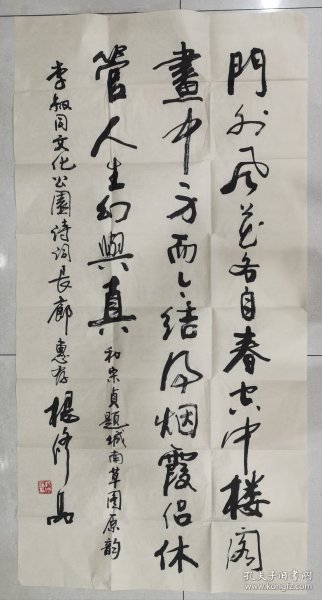 門外風花各自春空中楼阁
畫中身而今结得烟霞侣休
管人生幻與真
和宋貞題城南草图原韵
李叔同文化公園诗词長廊惠存 楊修
孔夫子旧书网